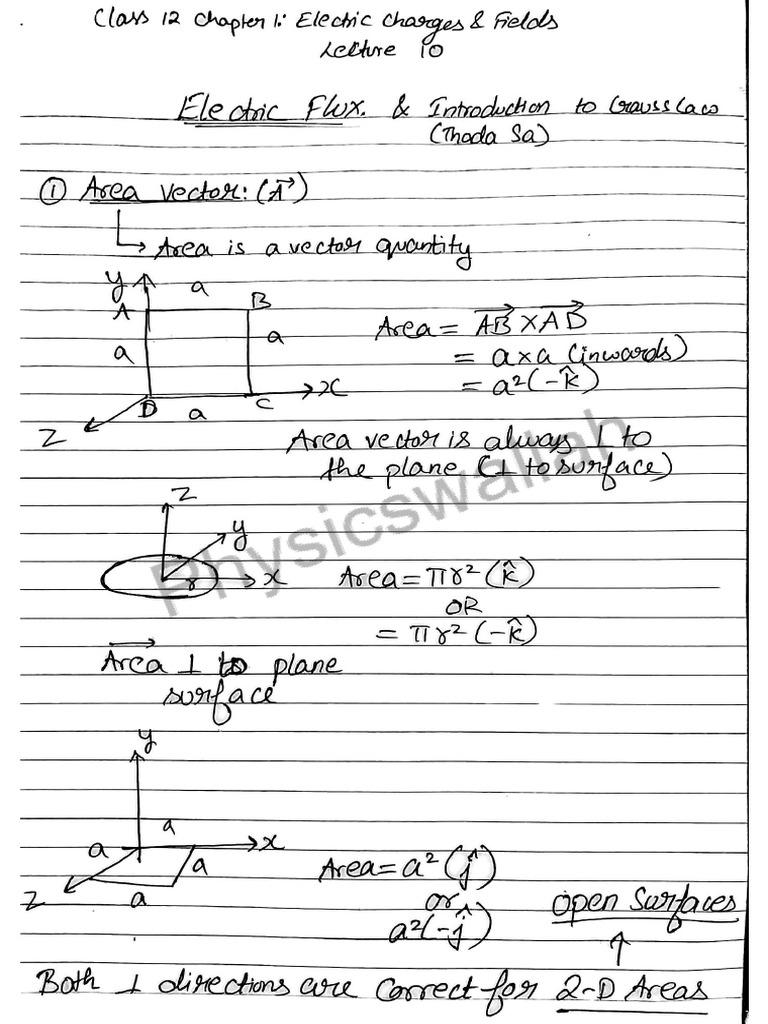 Class 12 Chapter 1: Electric Charges & Fields
Lecture 10
Electric Flux. & Introduction to Gauss Law
(Thoda Sa)
① Area vector: (A⃗)
↳ Area is a vector quantity
y a
A B
a a
D a C x
Z
Area = AB⃗ × AD⃗
= a×a (inwards)
= a²(-k̂)
Area vector is always ⊥ to
the plane (⊥ to surface)
Physicswallah
Z
y
r x
Area = πr² (k̂)
OR
= πr² (-k̂)
Area⃗ ⊥ to plane
surface
y
a
a x
a
Z a
Area = a² (ĵ)
or
a²(-ĵ)
Open Surfaces
↑
Both ⊥ directions are correct for 2-D Areas